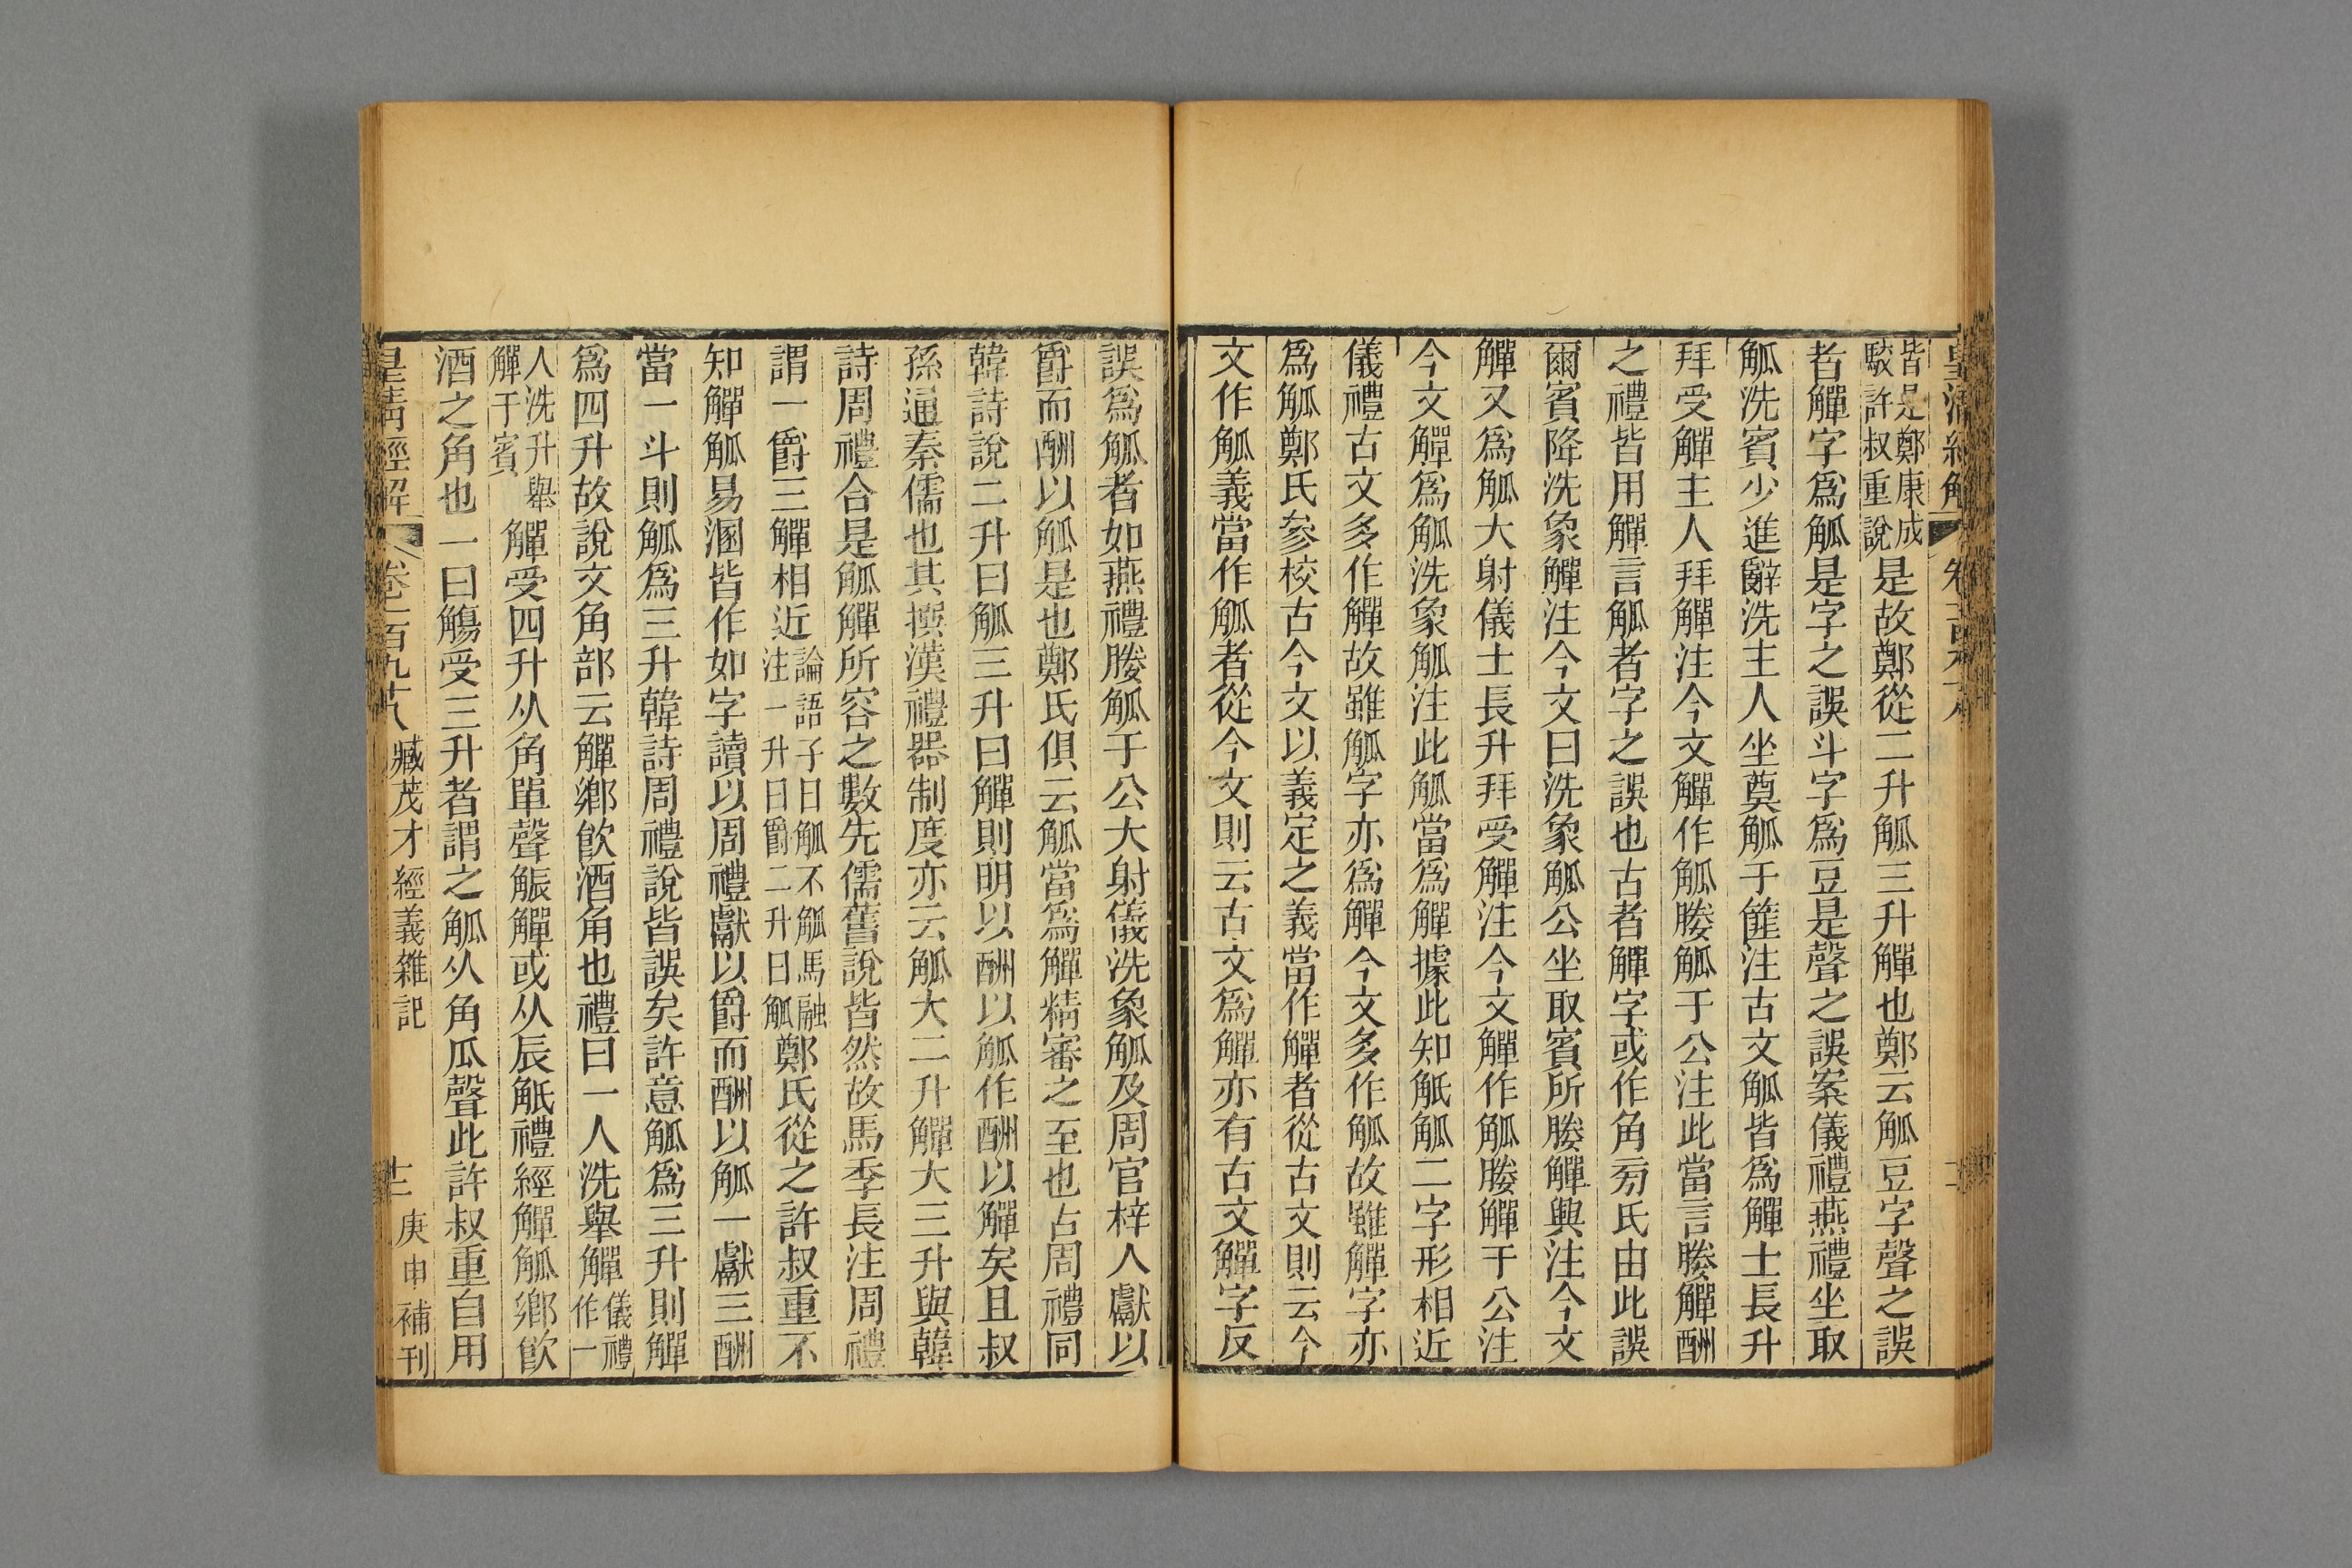 皇清經解
皆是鄭康成
駮許叔重說
是故鄭從二升觚三升觶也鄭云觚豆字聲之誤
者觶字爲觚是字之誤斗字爲豆是聲之誤案儀禮燕禮坐取
觚洗賓少進辭洗主人坐奠觚于篚注古文觚皆爲觶士長升
拜受觶主人拜觶注今文觶作觚媵觚于公注此當言媵觶酬
之禮皆用觶言觚者字之誤也古者觶字或作角㫄氏由此誤
爾賓降洗象觶注今文曰洗象觚公坐取賓所媵觶興注今文
觶又爲觚大射儀士長升拜受觶注今文觶作觚媵觶于公注
今文觶爲觚洗象觚注此觚當爲觶據此知觗觚二字形相近
儀禮古文多作觶故雖觚字亦爲觶今文多作觚故雖觶字亦
爲觚鄭氏參校古今文以義定之義當作觶者從古文則云今
文作觚義當作觚者從今文則云古文爲觶亦有古文觶字反
誤爲觚者如燕禮媵觚于公大射儀洗象觚及周官梓人獻以
爵而酬以觚是也鄭氏俱云觚當爲觶精審之至也古周禮同
韓詩說二升曰觚三升曰觶則明以酬以觚作酬以觶矣且叔
孫通秦儒也其撰漢禮器制度亦云觚大二升觶大三升與韓
詩周禮合是觚觶所容之數先儒舊說皆然故馬季長注周禮
謂一爵三觶相近
論語子曰觚不觚馬融
注一升曰爵二升曰觚
鄭氏從之許叔重不
知觶觚易溷皆作如字讀以周禮獻以爵而酬以觚一獻三酬
當一斗則觚爲三升韓詩周禮說皆誤矣許意觚爲三升則觶
爲四升故說文角部云觶鄉飲酒角也禮曰一人洗舉觶
儀禮
作一
人洗升舉
觶于賓
觶受四升从角單聲觶或从辰觗禮經觶觚鄉飲
酒之角也一曰觴受三升者謂之觚从角瓜聲此許叔重自用
皇清經解
卷一百九十八
臧茂才經義雜記
十二
庚申補刊